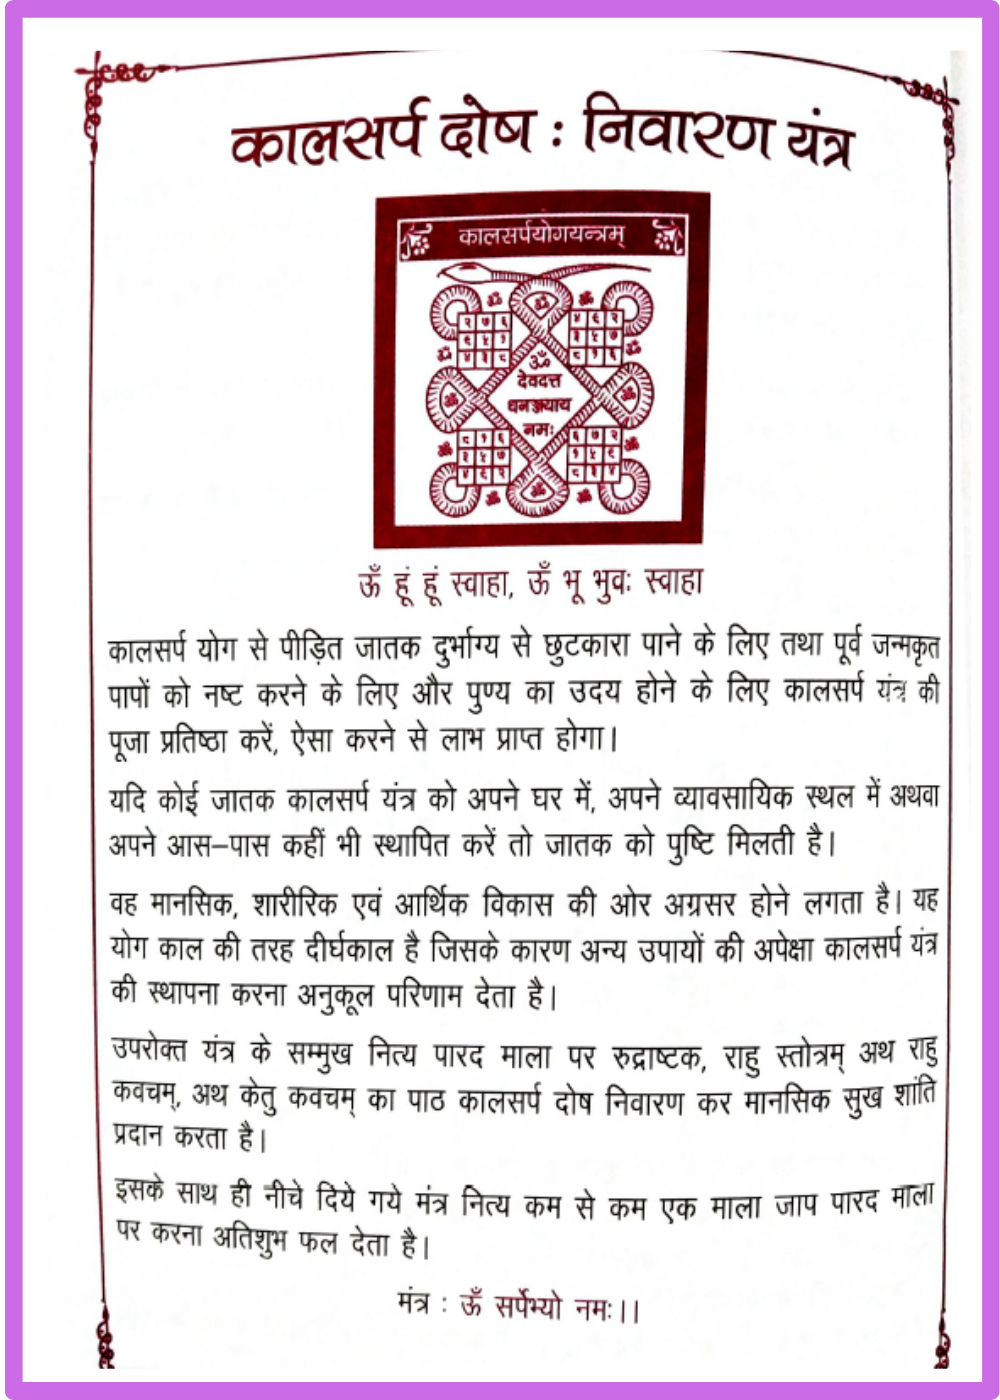 कालसर्प दोष : निवारण यंत्र
कालसर्पयोगयन्त्रम्
ॐ ॐ ॐ
२ ७ ६ ४ ९ २
९ ५ १ ३ ५ ७
ॐ ४ ३ ८ ८ १ ६ ॐ
ॐ
देवदत्त
ॐ धनञ्जयाय ॐ
नमः
८ १ ६ ६ ७ २
ॐ ३ ५ ७ १ ५ ९ ॐ
४ ९ २ ८ ३ ४
ॐ ॐ ॐ
ऊँ हूं हूं स्वाहा, ऊँ भू भुवः स्वाहा
कालसर्प योग से पीड़ित जातक दुर्भाग्य से छुटकारा पाने के लिए तथा पूर्व जन्मकृत
पापों को नष्ट करने के लिए और पुण्य का उदय होने के लिए कालसर्प यंत्र की
पूजा प्रतिष्ठा करें, ऐसा करने से लाभ प्राप्त होगा।
यदि कोई जातक कालसर्प यंत्र को अपने घर में, अपने व्यावसायिक स्थल में अथवा
अपने आस–पास कहीं भी स्थापित करें तो जातक को पुष्टि मिलती है।
वह मानसिक, शारीरिक एवं आर्थिक विकास की ओर अग्रसर होने लगता है। यह
योग काल की तरह दीर्घकाल है जिसके कारण अन्य उपायों की अपेक्षा कालसर्प यंत्र
की स्थापना करना अनुकूल परिणाम देता है।
उपरोक्त यंत्र के सम्मुख नित्य पारद माला पर रुद्राष्टक, राहु स्तोत्रम् अथ राहु
कवचम्, अथ केतु कवचम् का पाठ कालसर्प दोष निवारण कर मानसिक सुख शांति
प्रदान करता है।
इसके साथ ही नीचे दिये गये मंत्र नित्य कम से कम एक माला जाप पारद माला
पर करना अतिशुभ फल देता है।
मंत्र : ऊँ सर्पेभ्यो नमः।।